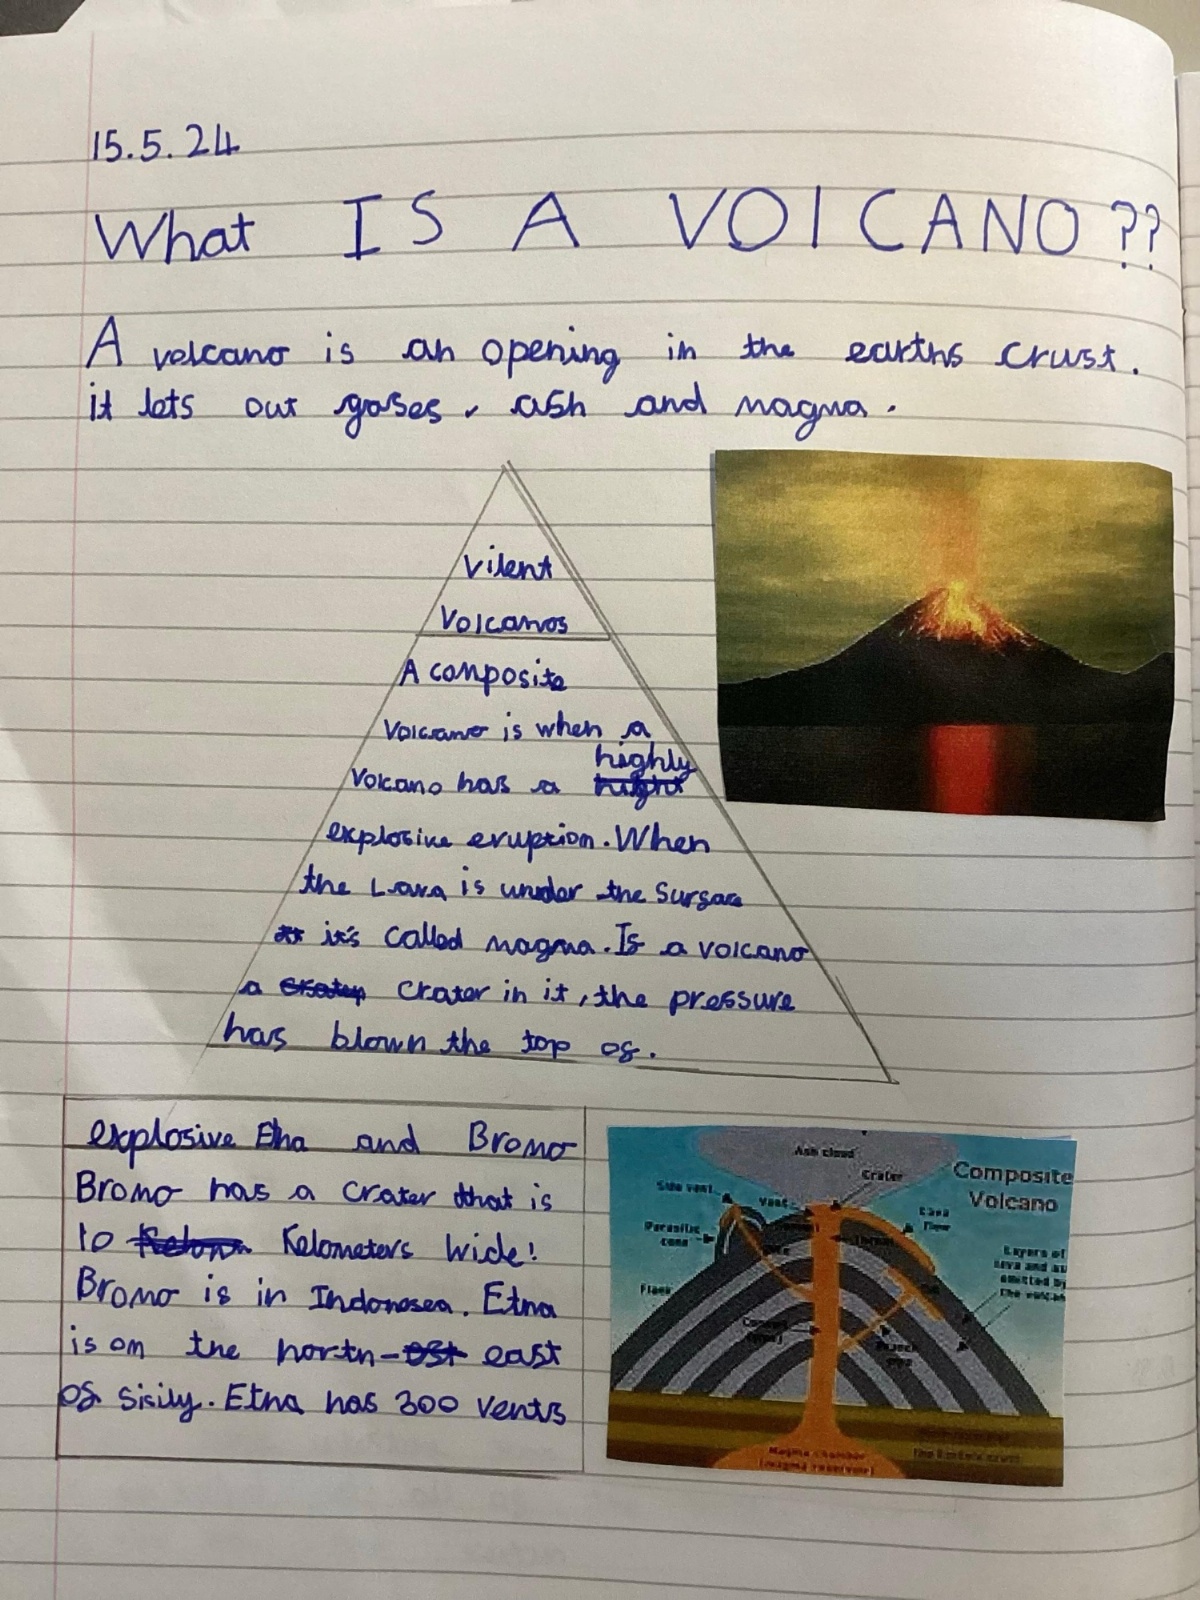 15.5.24
What IS A VOlCANO??
A volcano is an opening in the earths crust.
it lets out gases, ash and magma.
Vilent
Volcanos
A composite
Volcano is when a
highly
Volcano has a hight
explosive eruption. When
the Lava is under the Surface
it's called magma. If a volcano
a crater in it, the pressure
has blown the top of.
explosive Etna and Bromo
Bromo has a crater that is
10 Kelometers wide!
Bromo is in Indonosea. Etna
is on the north-est east
of sisily. Etna has 300 vents
Ash cloud
Crater
Composite
Volcano
Side vent
Vent
Lava
flow
Parasitic
cone
Throat
Layers of
lava and as
emitted by
the volcan
Flank
Conduit
Branch
pipe
Magma chamber
(magma reservoir)